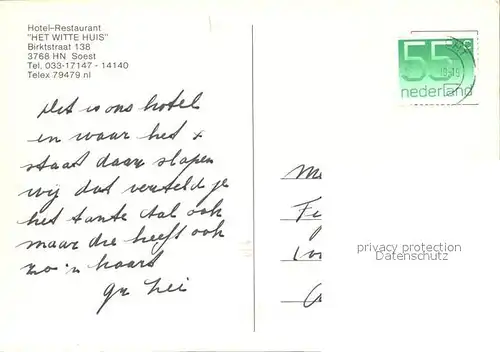 Hotel-Restaurant
"HET WITTE HUIS"
Birktstraat 138
3768 HN Soest
Tel. 033-17147 - 14140
Telex 79479.nl
55c
nederland
Dit is ons hotel
en waar het x
staat daar slapen
wij dat vertelde je
het tante ook
maar die heeft ook
zo'n kaart
privacy protection
Datenschutz